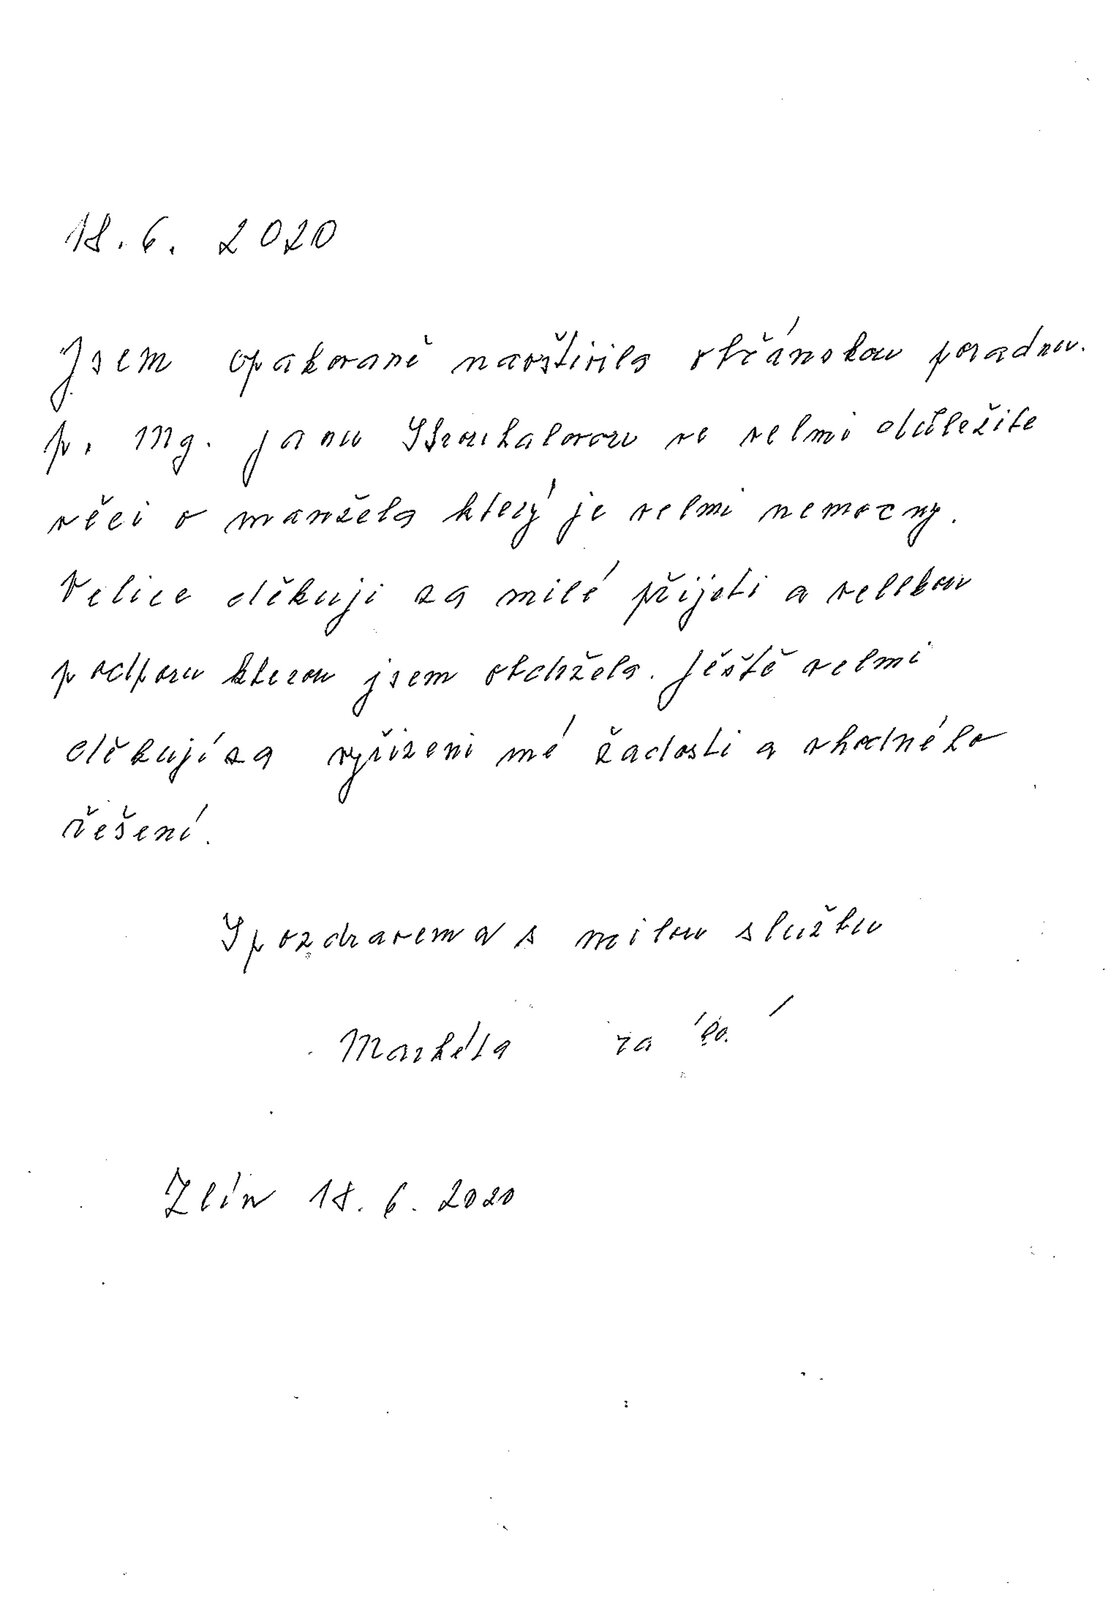 18.6. 2020
Jsem opakovaně navštívila občánskou poradnu.
p. Mg. Janu ve velmi důležite
věci o manžela který je velmi nemocny.
Velice děkuji za milé přijeti a velikou
podporu kterou jsem obdržela. Jěště velmi
děkují za vyřizeni mé žadosti a vhodného
řešení.
S pozdravem a s milou službu
Markéta
Zlín 18.6.2020